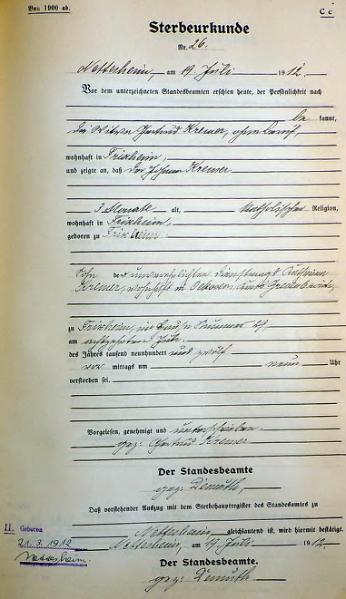 Von 1900 ab.
C c
Sterbeurkunde
Nr. 26.
Nettersheim, am 19 Juli 1912.
Vor dem unterzeichneten Standesbeamten erschien heute, der Persönlichkeit nach
be kannt,
die Witwe Gertrud Kremer, ohne Beruf,
wohnhaft in Frixheim,
und zeigte an, daß der Johann Kremer
3 Monate alt, katholischer Religion,
wohnhaft in Frixheim,
geboren zu Frixheim
Sohn der unverehelichten Dienstmagd
Kremer, wohnhaft in
zu Frixheim, im Hause Nummer 29
am achtzehnten Juli
des Jahres tausend neunhundert und zwölf
vor mittags um neun Uhr
verstorben sei.
Vorgelesen, genehmigt und unterschrieben
gez: Gertrud Kremer
Der Standesbeamte
gez:
Daß vorstehender Auszug mit dem Sterbehauptregister des Standesamtes zu
gleichlautend ist, wird hiermit bestätigt.
am 19 Juli 1912.
Der Standesbeamte.
gez:
II. Geboren
21.3.1912